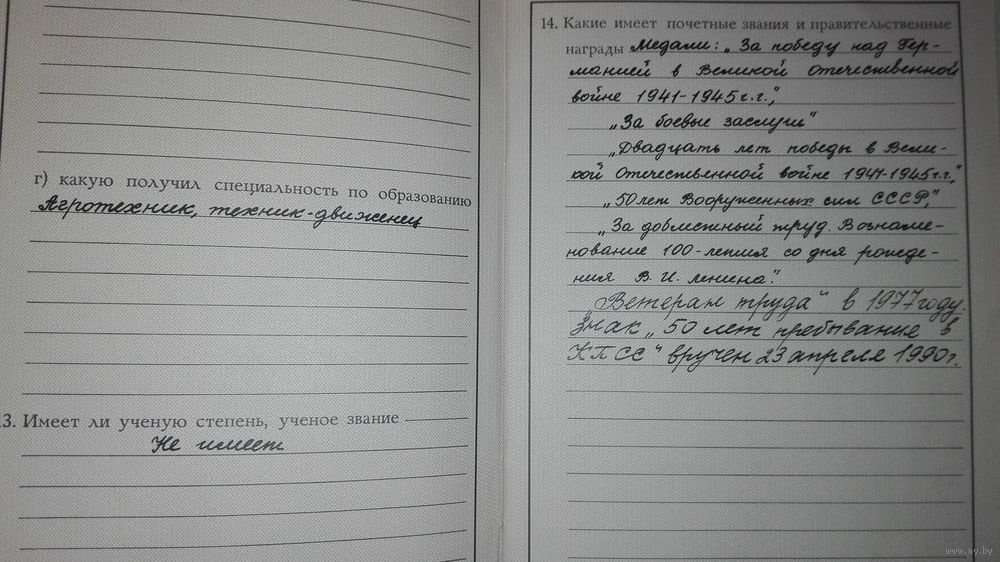 г) какую получил специальность по образованию
Агротехник, техник-движенец
13. Имеет ли ученую степень, ученое звание
Не имеет
14. Какие имеет почетные звания и правительственные
награды Медали: „За победу над Гер-
манией в Великой Отечественной
войне 1941-1945 г.г.",
„За боевые заслуги"
„Двадцать лет победы в Вели-
кой Отечественной войне 1941-1945 г.г.",
„50 лет Вооруженных сил СССР",
„За доблестный труд. Возна­ме-
нование 100-летия со дня рожде-
ния В. И. Ленина".
„Ветеран труда" в 1977 году.
Знак „50 лет пребывание в
КПСС" вручен 23 апреля 1990 г.
www.ay.by